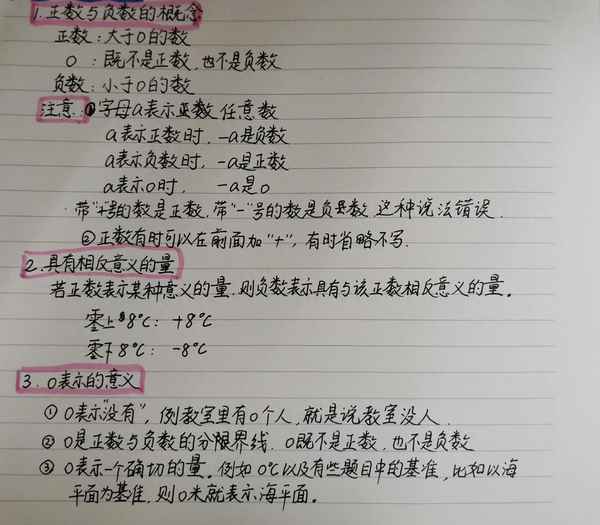 1.正数与负数的概念
正数:大于0的数
0:既不是正数,也不是负数
负数:小于0的数
注意:①字母a表示任意数
a表示正数时,-a是负数
a表示负数时,-a是正数
a表示0时,-a是0
·带"+"号的数是正数,带"-"号的数是负数,这种说法错误.
②正数有时可以在前面加"+",有时省略不写.
2.具有相反意义的量
若正数表示某种意义的量.则负数表示具有与该正数相反意义的量。
零上8℃:+8℃
零下8℃:-8℃
3.0表示的意义
①0表示"没有",例教室里有0个人,就是说教室没人.
②0是正数与负数的分界线.0既不是正数,也不是负数
③0表示一个确切的量.例如0℃以及有些题目中的基准,比如以海
平面为基准,则0米就表示海平面。